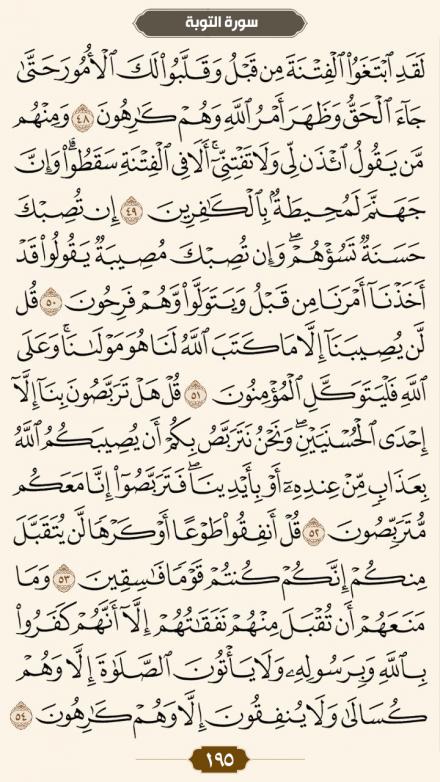 سورة التوبة
لَقَدِ ٱبۡتَغَوُاْ ٱلۡفِتۡنَةَ مِن قَبۡلُ وَقَلَّبُواْ لَكَ ٱلۡأُمُورَ حَتَّىٰ
جَآءَ ٱلۡحَقُّ وَظَهَرَ أَمۡرُ ٱللَّهِ وَهُمۡ كَٰرِهُونَ ٤٨ وَمِنۡهُم
مَّن يَقُولُ ٱئۡذَن لِّي وَلَا تَفۡتِنِّيٓۚ أَلَا فِي ٱلۡفِتۡنَةِ سَقَطُواْۗ وَإِنَّ
جَهَنَّمَ لَمُحِيطَةُۢ بِٱلۡكَٰفِرِينَ ٤٩ إِن تُصِبۡكَ
حَسَنَةٞ تَسُؤۡهُمۡۖ وَإِن تُصِبۡكَ مُصِيبَةٞ يَقُولُواْ قَدۡ
أَخَذۡنَآ أَمۡرَنَا مِن قَبۡلُ وَيَتَوَلَّواْ وَّهُمۡ فَرِحُونَ ٥٠ قُل
لَّن يُصِيبَنَآ إِلَّا مَا كَتَبَ ٱللَّهُ لَنَا هُوَ مَوۡلَىٰنَاۚ وَعَلَى
ٱللَّهِ فَلۡيَتَوَكَّلِ ٱلۡمُؤۡمِنُونَ ٥١ قُلۡ هَلۡ تَرَبَّصُونَ بِنَآ إِلَّآ
إِحۡدَى ٱلۡحُسۡنَيَيۡنِۖ وَنَحۡنُ نَتَرَبَّصُ بِكُمۡ أَن يُصِيبَكُمُ ٱللَّهُ
بِعَذَابٖ مِّنۡ عِندِهِۦٓ أَوۡ بِأَيۡدِينَاۖ فَتَرَبَّصُوٓاْ إِنَّا مَعَكُم
مُّتَرَبِّصُونَ ٥٢ قُلۡ أَنفِقُواْ طَوۡعًا أَوۡ كَرۡهٗا لَّن يُتَقَبَّلَ
مِنكُمۡ إِنَّكُمۡ كُنتُمۡ قَوۡمٗا فَٰسِقِينَ ٥٣ وَمَا
مَنَعَهُمۡ أَن تُقۡبَلَ مِنۡهُمۡ نَفَقَٰتُهُمۡ إِلَّآ أَنَّهُمۡ كَفَرُواْ
بِٱللَّهِ وَبِرَسُولِهِۦ وَلَا يَأۡتُونَ ٱلصَّلَوٰةَ إِلَّا وَهُمۡ
كُسَالَىٰ وَلَا يُنفِقُونَ إِلَّا وَهُمۡ كَٰرِهُونَ ٥٤
١٩٥